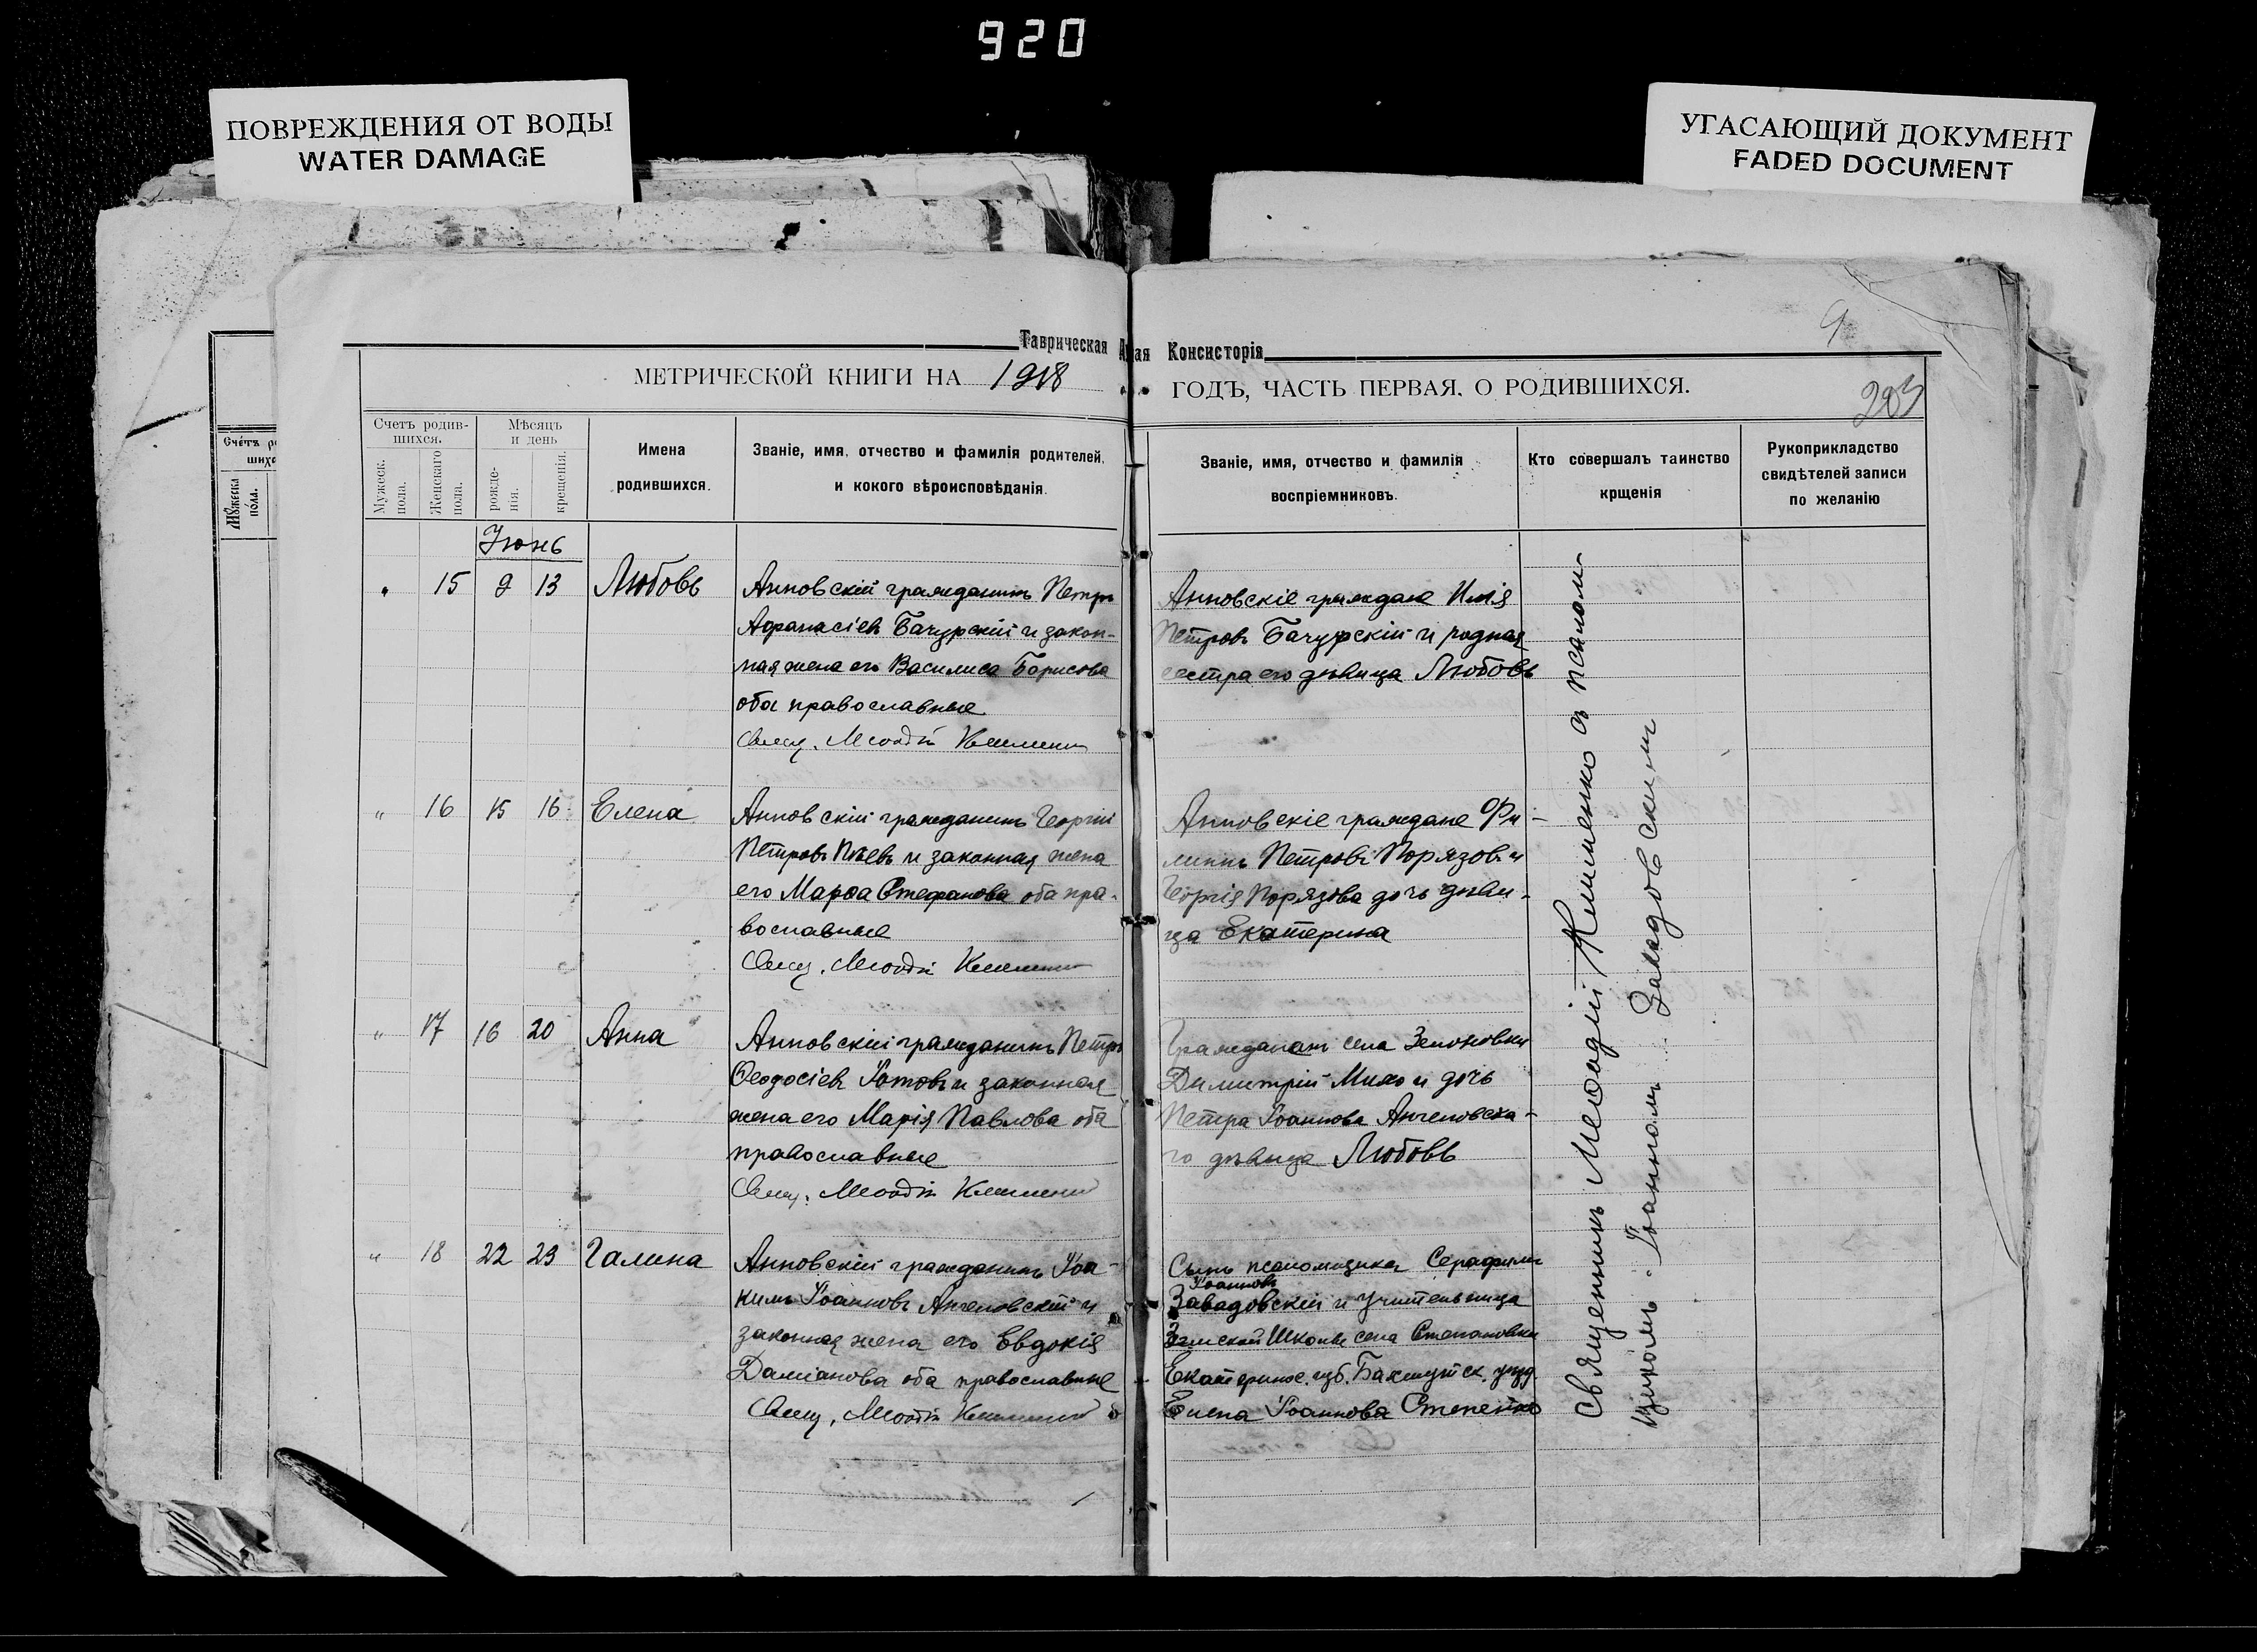 920
ПОВРЕЖДЕНИЯ ОТ ВОДЫ
WATER DAMAGE
УГАСАЮЩИЙ ДОКУМЕНТ
FADED DOCUMENT
Таврическая
ная Консисторія
9
МЕТРИЧЕСКОЙ КНИГИ НА 1918
ГОДЪ, ЧАСТЬ ПЕРВАЯ, О РОДИВШИХСЯ.
Счетъ родив-
шихся.
Мужеск.
пола.
Женскаго
пола.
Мѣсяцъ
и день
рожде-
нія.
крещенія.
Имена
родившихся.
Званіе, имя, отчество и фамилія родителей,
и кокого вѣроисповѣданія.
Званіе, имя, отчество и фамилія
воспріемниковъ.
Кто совершалъ таинство
крщенія
Рукоприкладство
свидѣтелей записи
по желанію
Іюнь
" 15 9 13 Любовь
Анновскій гражданинъ Петръ
Афанасіевъ Бачурскій и закон-
ная жена его Василиса Борисова
оба православные
Свящ. Меѳодій Клименко
Анновскіе граждане Илія
Петровъ Бачурскій и родная
сестра его дѣвица Любовь
" 16 15 16 Елена
Анновскій гражданинъ Георгій
Петровъ и законная жена
его Марѳа Стефанова оба пра-
вославные
Свящ. Меѳодій Клименко
Анновскіе граждане Фи-
липпъ Петровъ Порязовъ и
Георгія Порязова дочь дѣви-
ца Екатерина
" 17 16 20 Анна
Анновскій гражданинъ Петръ
Ѳеодосіевъ и законная
жена его Марія Павлова оба
православные
Свящ. Меѳодій Клименко
села
Димитрій и дочь
Петра Іоаннова Ангеловска-
го дѣвица Любовь
" 18 22 23 Галина
Анновскій гражданинъ Іоа-
кимъ Іоанновъ Ангеловскій и
законная жена его Евдокія
Даміанова оба православные
Свящ. Меѳодій Клименко
Сынъ псаломщика Серафимъ
Іоанновъ
Завадовскій и учительница
Земской Школы села Степановки
Екатеринос. губ. Бахмутск. уѣзд.
Елена Іоаннова Степенко
Священникъ Меѳодій Клименко съ псалом-
щикомъ Іоанномъ Завадовскимъ
Счетъ
шихс
Мужеска
пола.